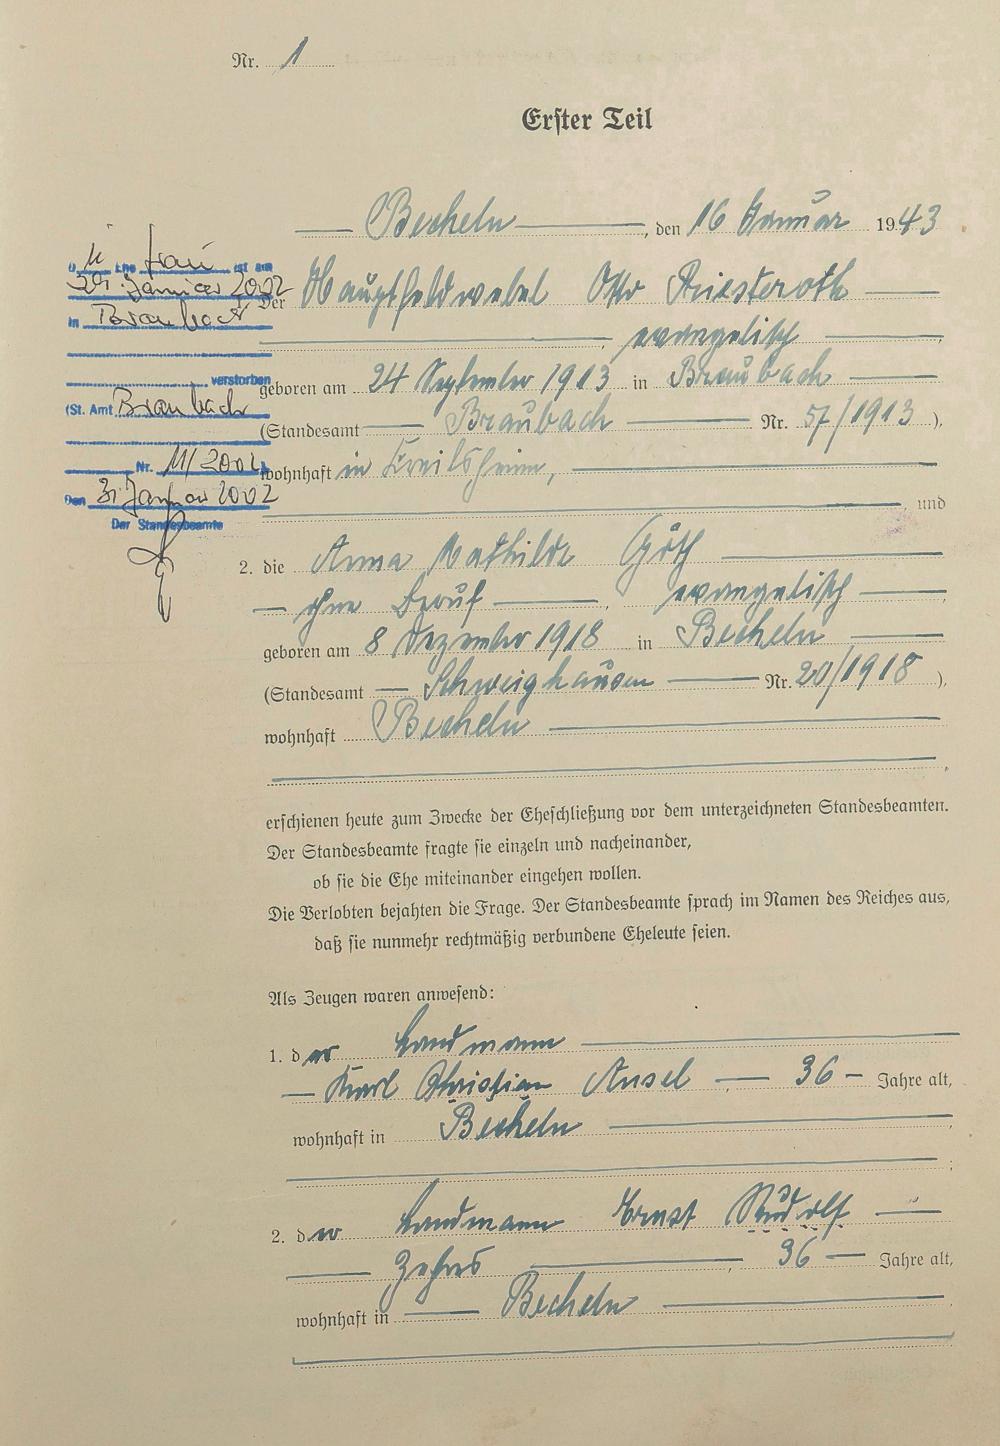 Nr. 1
Erster Teil
Becheln, den 16 Januar 1943
Der Hauptfeldwebel Otto Priesteroth
, evangelisch,
geboren am 24 September 1913 in Braubach
(Standesamt Braubach Nr. 57/1913),
wohnhaft in Kreilsheim,
, und
2. die Anna Mathilde Göth
ohne Beruf, evangelisch,
geboren am 8 Dezember 1918 in Becheln
(Standesamt Schweighausen Nr. 20/1918),
wohnhaft Becheln
,
erschienen heute zum Zwecke der Eheschließung vor dem unterzeichneten Standesbeamten.
Der Standesbeamte fragte sie einzeln und nacheinander,
ob sie die Ehe miteinander eingehen wollen.
Die Verlobten bejahten die Frage. Der Standesbeamte sprach im Namen des Reiches aus,
daß sie nunmehr rechtmäßig verbundene Eheleute seien.
Als Zeugen waren anwesend:
1. der Landmann
Karl Christian Ansel, 36 Jahre alt,
wohnhaft in Becheln,
;
2. der Landmann Ernst Rudolf
, 36 Jahre alt,
wohnhaft in Becheln.
Ehefrau ist am
29. Januar 2002
in Braubach
verstorben
(St. Amt Braubach
Nr. 11/2002)
Den 31. Januar 2002
Der Standesbeamte